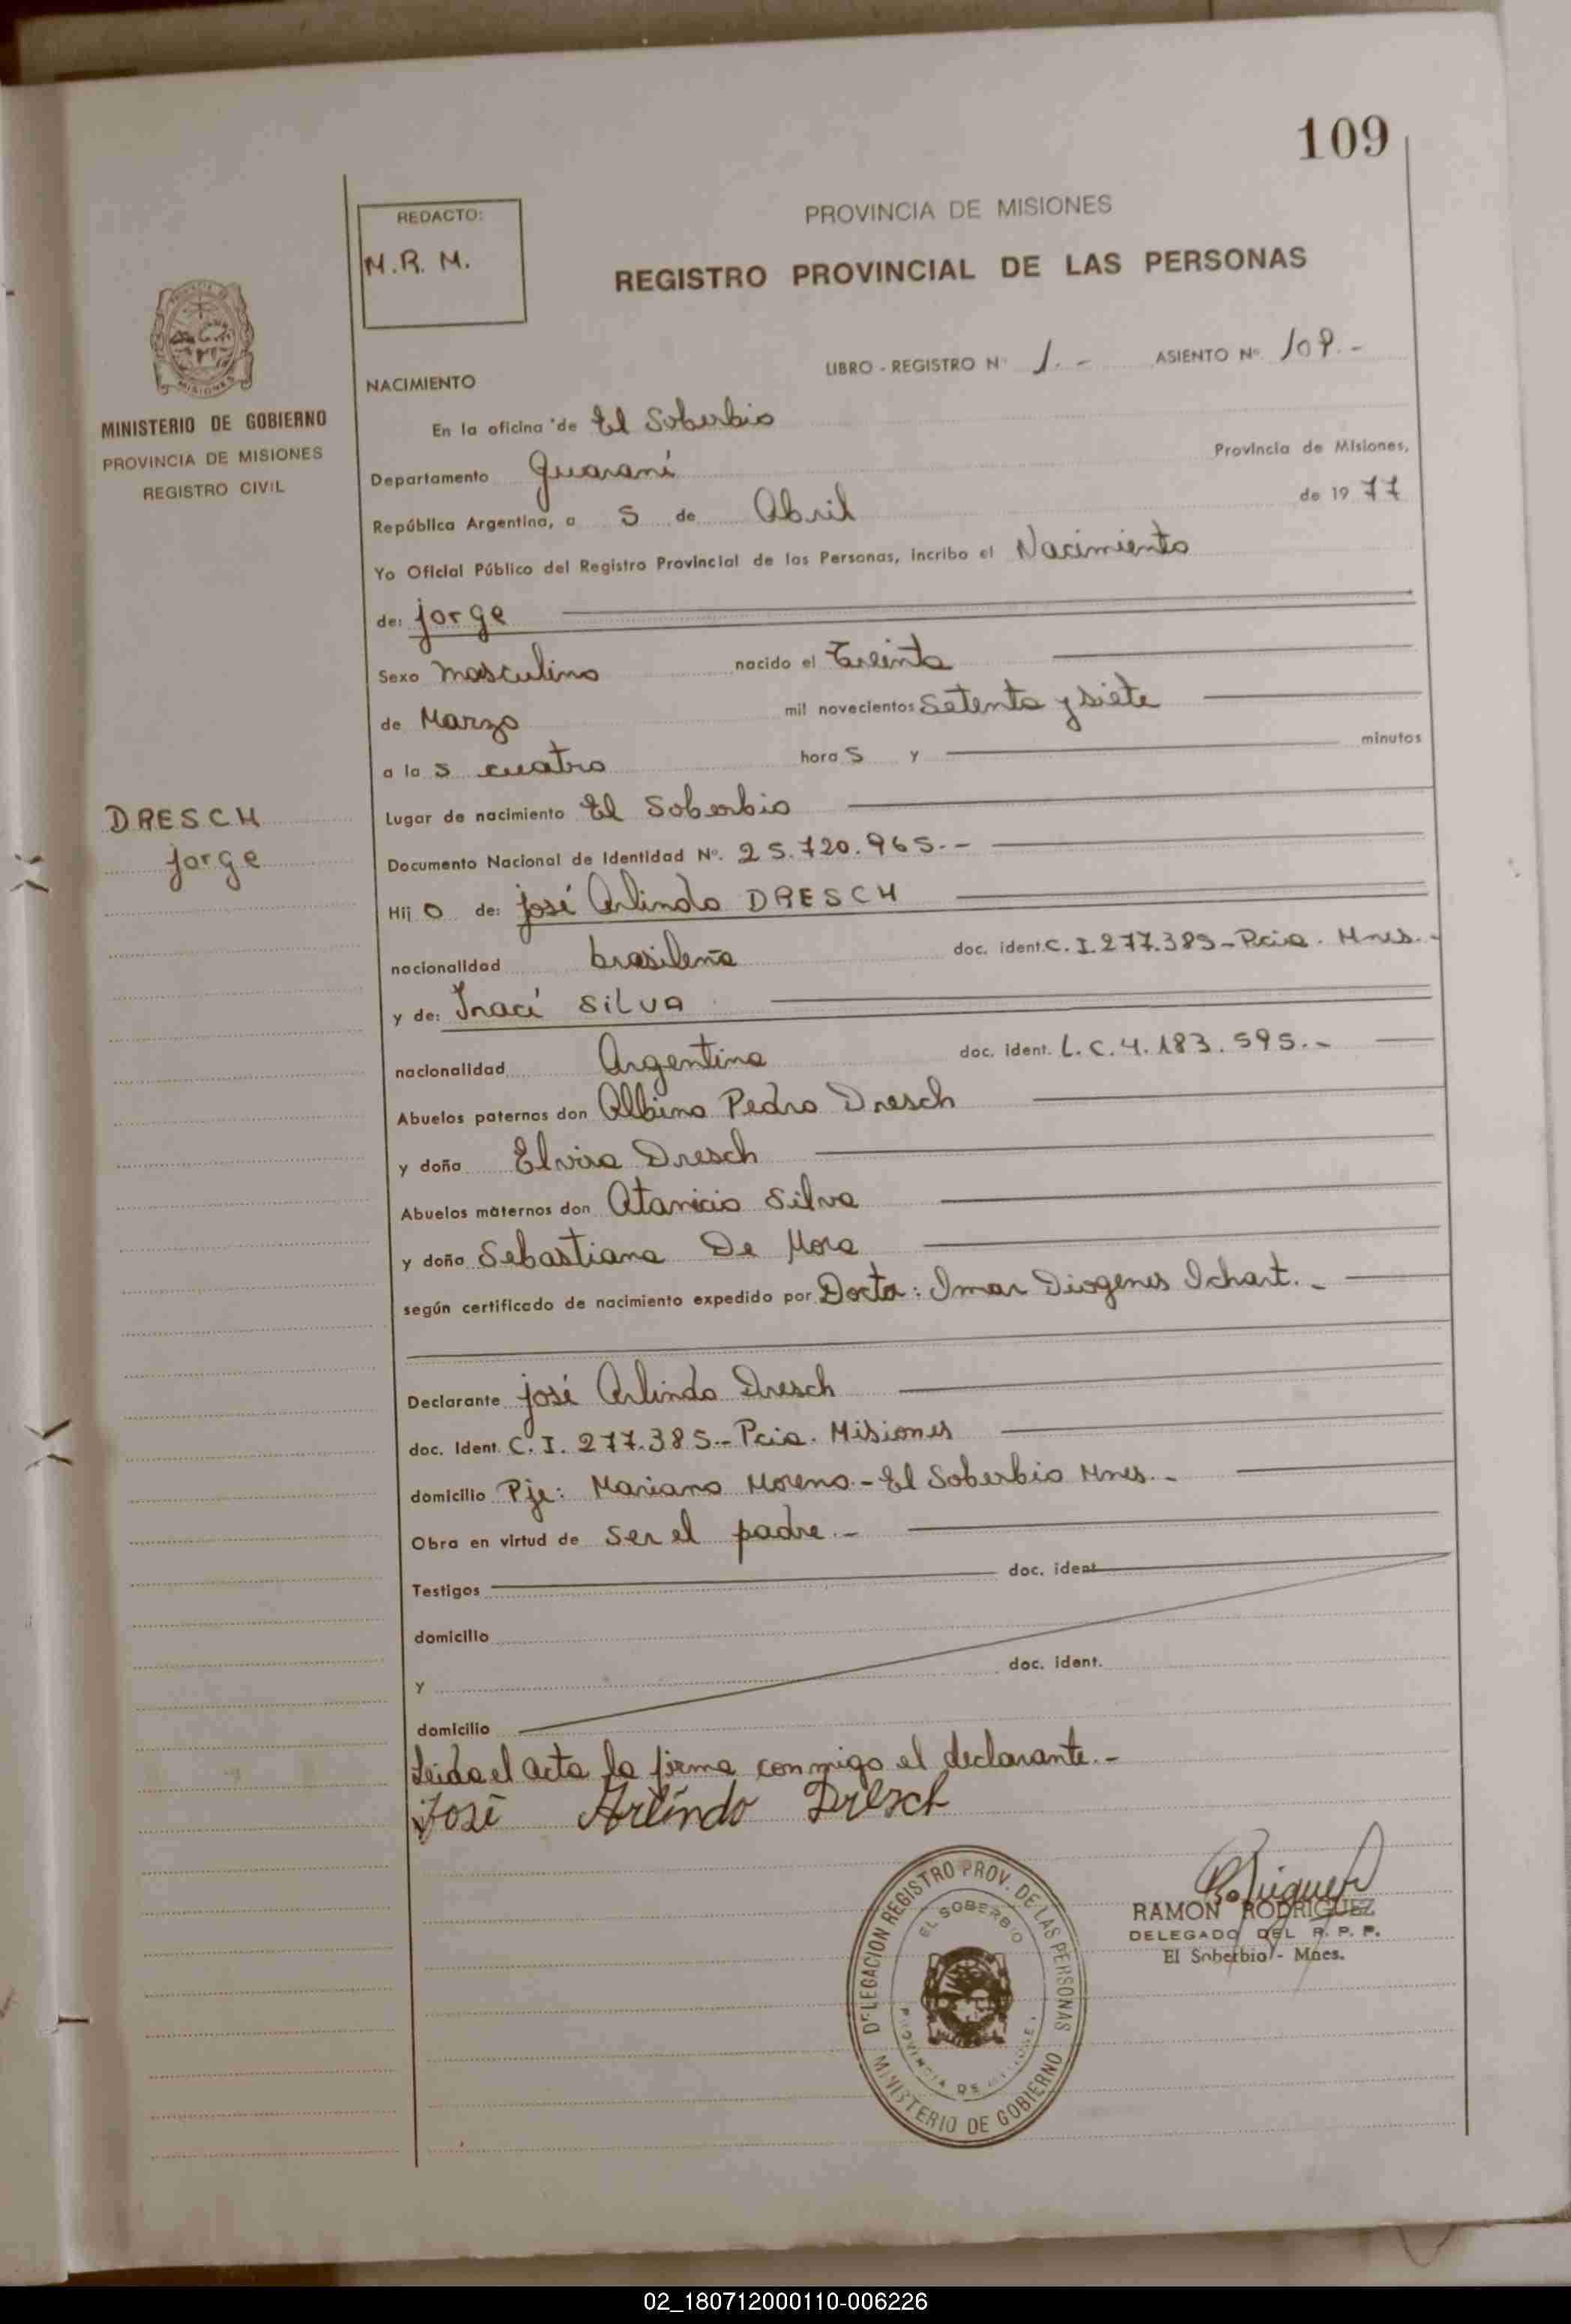 109
REDACTO:
M.R. M.
PROVINCIA DE MISIONES
REGISTRO PROVINCIAL DE LAS PERSONAS
MINISTERIO DE GOBIERNO
PROVINCIA DE MISIONES
REGISTRO CIVIL
LIBRO - REGISTRO Nº 1.- ASIENTO Nº 109.-
NACIMIENTO
En la oficina de El Soberbio
Departamento Guaraní Provincia de Misiones,
República Argentina, a 5 de Abril de 1977
Yo Oficial Público del Registro Provincial de las Personas, incribo el Nacimiento
de: jorge
Sexo masculino nacido el Treinta
de Marzo mil novecientos Setenta y siete
a la s cuatro hora s y minutos
Lugar de nacimiento El Soberbio
DRESCH
jorge
Documento Nacional de Identidad Nº. 25.720.965.-
Hij o de: josé Arlindo DRESCH
nacionalidad brasileña doc. ident. C.I. 277.385 - Pcia. Mnes.-
y de: Iraci SILVA
nacionalidad Argentina doc. ident. L.C. 4.183.595.-
Abuelos paternos don Albino Pedro Dresch
y doña Elvira Dresch
Abuelos maternos don Atanicio Silva
y doña Sebastiana De Mora
según certificado de nacimiento expedido por Docta: Imar Diogenes Ichart.-
Declarante josé Arlindo Dresch
doc. Ident. C.I. 277.385.- Pcia. Misiones
domicilio Pje: Mariano Moreno - El Soberbio Mnes.-
Obra en virtud de ser el padre.-
Testigos doc. ident.
domicilio
y doc. ident.
domicilio
Leida el acta la firma conmigo el declarante.-
José Arlindo Dresch
DELEGACION REGISTRO PROV. DE LAS PERSONAS
EL SOBERBIO
PROVINCIA DE MISIONES
MINISTERIO DE GOBIERNO
RAMON RODRIGUEZ
DELEGADO DEL R. P. P.
El Soberbio - Mnes.
02_180712000110-006226